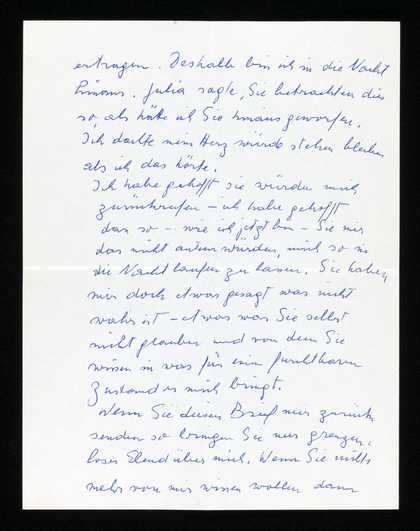 ertragen. Deshalb bin ich in die Nacht
hinaus. Julia sagte, Sie betrachten dies
so, als hätte ich Sie hinausgeworfen.
Ich dachte mein Herz würde stehen bleiben
als ich das hörte.
Ich habe gehofft sie würden mich
zurückrufen – ich habe gehofft
dass so – wie ich jetzt bin – Sie mir
das nicht antun würden, mich so in
die Nacht laufen zu lassen. Sie haben
mir doch etwas gesagt was nicht
wahr ist – etwas was Sie selbst
nicht glauben und von dem Sie
wissen in was für ein furchtbaren
Zustand es mich bringt.
Wenn Sie diesen Brief nur zurück
senden so bringen Sie nur grenzen-
loses Elend über mich. Wenn Sie nichts
mehr von mir wissen wollen dann